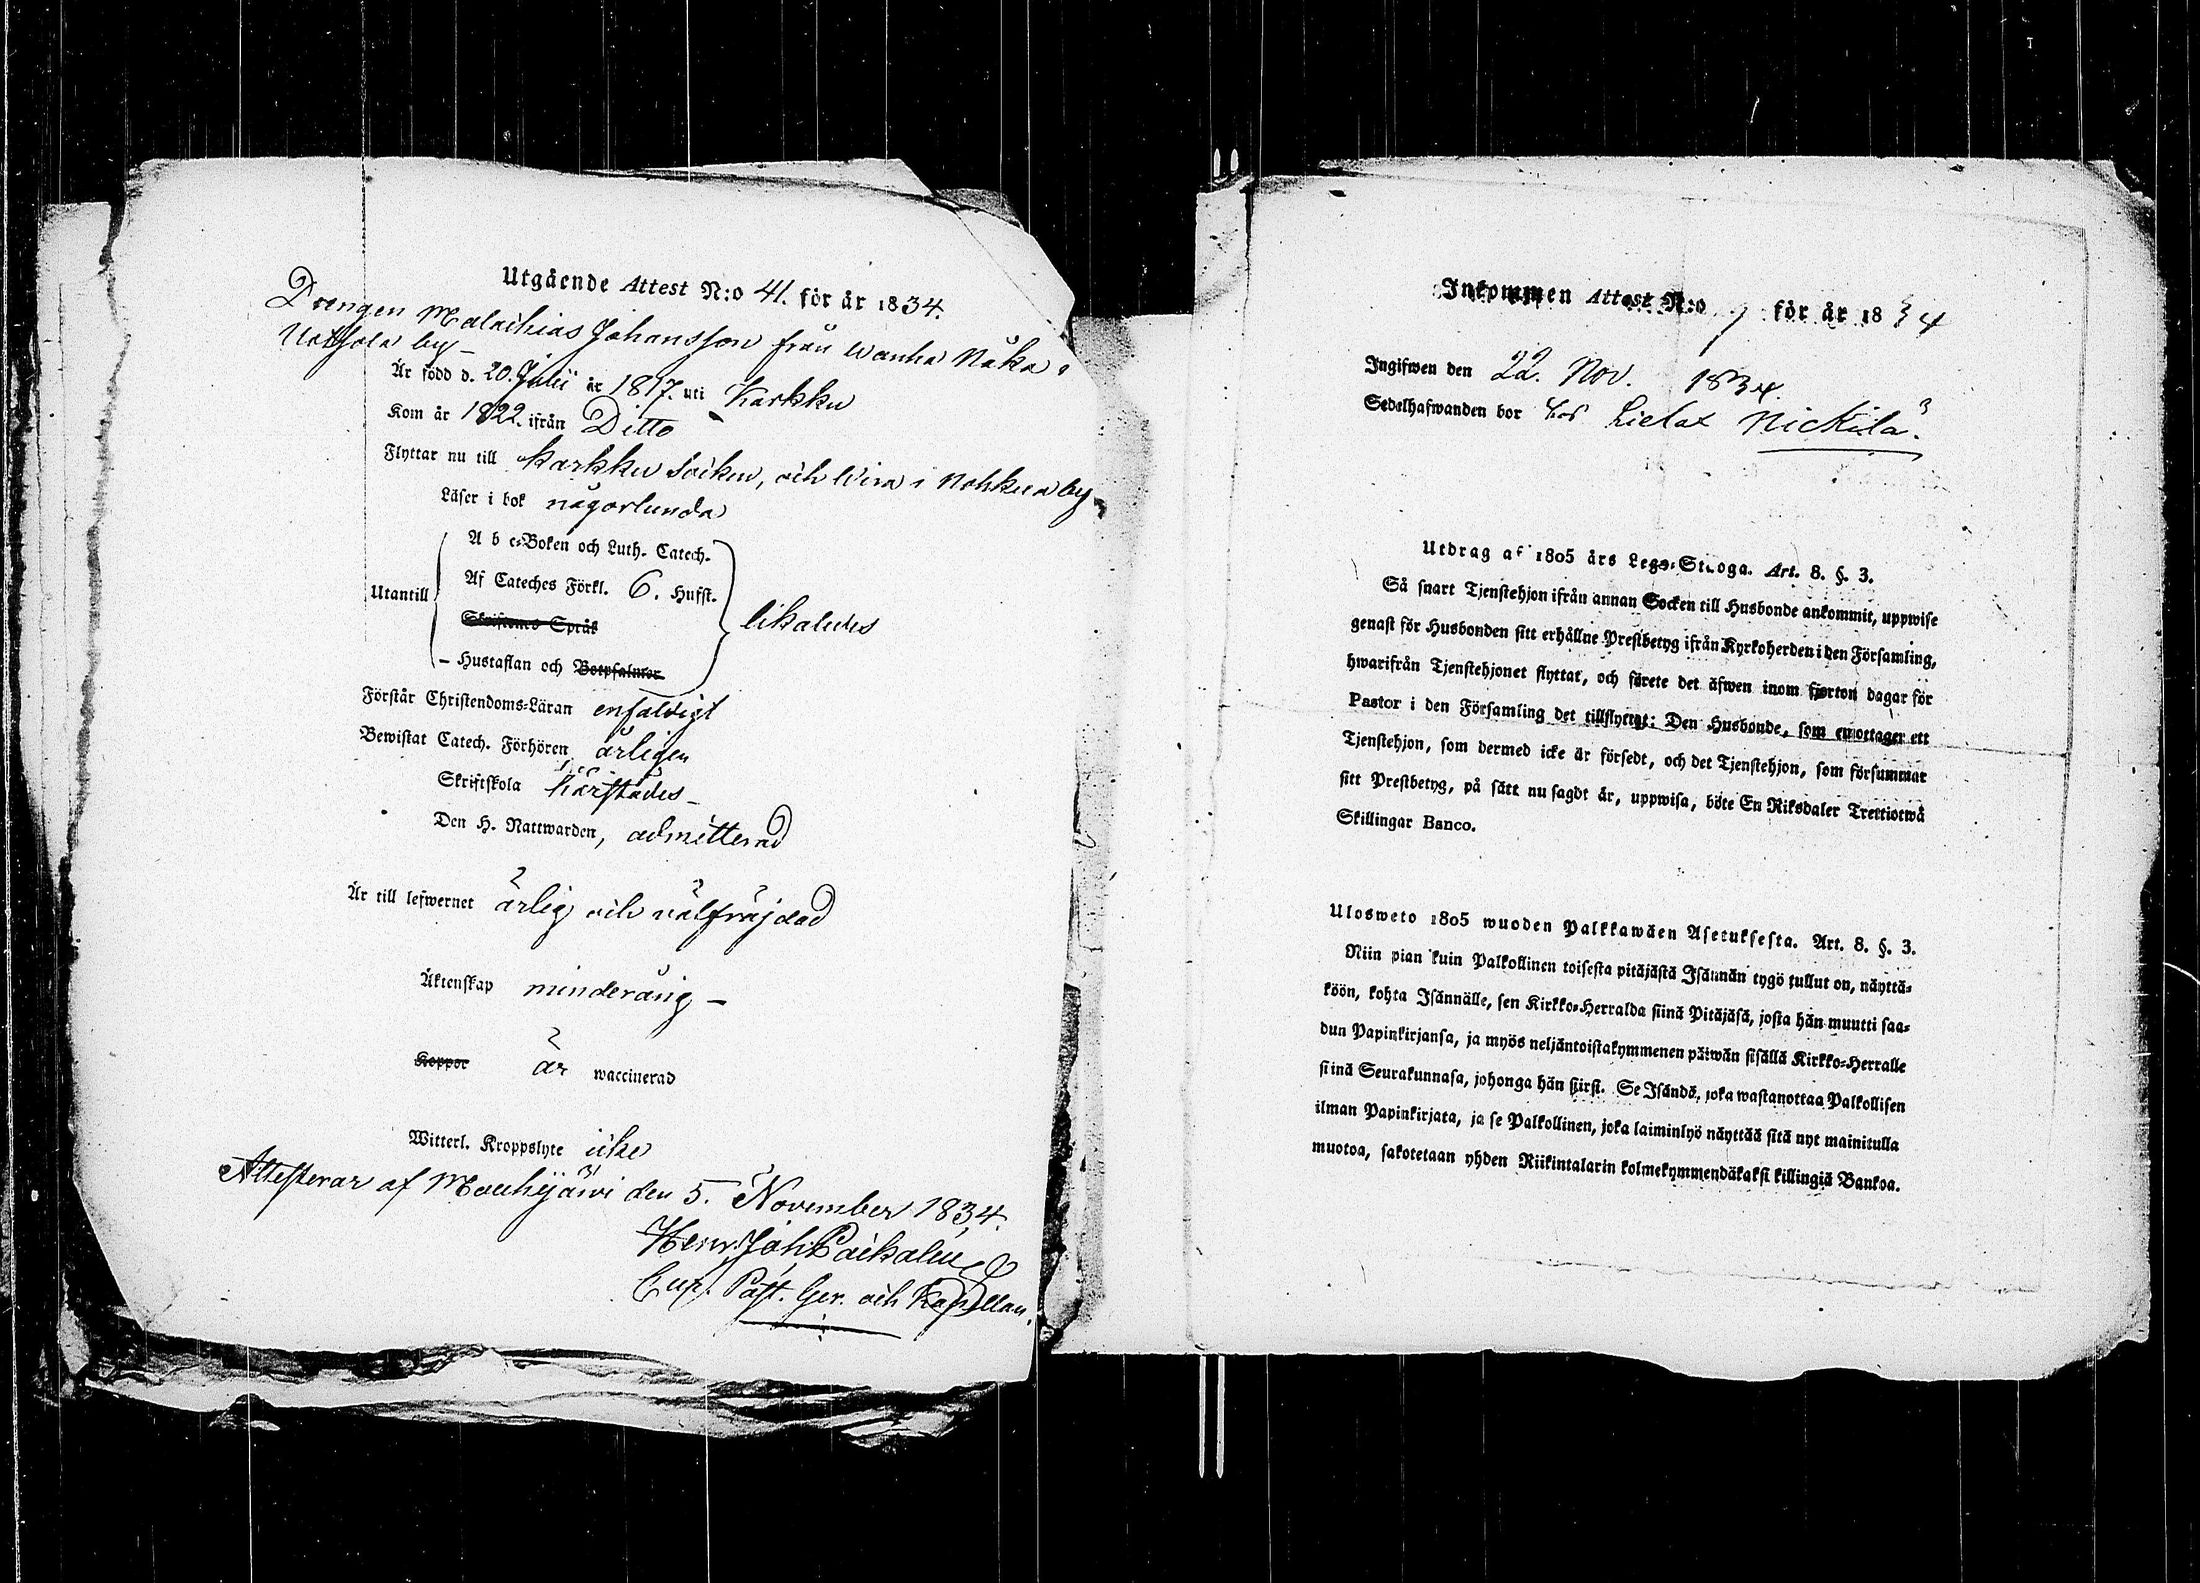 Utgående Attest N:o 41. för år 1834.
Drengen Malachias Johansson från Wanha Nåka i
by
Är född d. 20. Julii år 1817. uti Karkku
Kom år 1822. ifrån Ditto
Flyttar nu till Karkku Socken, och i by
Läser i bok någorlunda
A b c-Boken och Luth. Catech.
Af Cateches Förkl. 6. Hufst.
Utantill
Skriftenes Språk
likaledes
– Hustaflan och Botpsalmer
Förstår Christendoms-Läran enfaldigt
Bewistat Catech. Förhören, årligen
Skriftskola härstädes –
Den H. Nattwarden, admitterad
Är till lefwernet ärlig och välfräjdad
Äktenskap minderårig –
Koppor är waccinerad
Witterl. Kroppslyte icke
Attesterar af Mouhijärvi den 5. November 1834.
Henr. Joh.
Past. och Kapellan.
Inkommen Attest N:o för år 1834
Ingifwen den 22. Nov. 1834.
Sedelhafwanden bor hos Nickilä.
Utdrag af 1805 års Lego-Stadga. Art. 8. §. 3.
Så snart Tjenstehjon ifrån annan Socken till Husbonde ankommit, uppwise
genast för Husbonden sitt erhållne Prestbetyg ifrån Kyrkoherden i den Församling,
hwarifrån Tjenstehjonet flyttat, och förete det äfwen inom fjorton dagar för
Pastor i den Församling det tillflyttat: Den Husbonde, som emottager ett
Tjenstehjon, som dermed icke är försedt, och det Tjenstehjon, som försummar
sitt Prestbetyg, på sätt nu sagdt är, uppwisa, böte En Riksdaler Trettiotwå
Skillingar Banco.
Ulosweto 1805 wuoden Palkkawäen Asetuksesta. Art. 8. §. 3.
Niin pian kuin Palkollinen toisesta pitäjästä Isännän tygö tullut on, näyttä-
köön, kohta Isännälle, sen Kirkko-Herralda siinä Pitäjäsä, josta hän muutti saa-
dun Papinkirjansa, ja myös neljäntoistakymmenen päiwän sisällä Kirkko-Herralle
siinä Seurakunnasa, johonga hän siirsi. Se Isändä, joka wastanottaa Palkollisen
ilman Papinkirjata, ja se Palkollinen, joka laiminlyö näyttää sitä nyt mainitulla
muotoa, sakotetaan yhden Riikintalarin kolmekymmendäkaksi killingiä Bankoa.